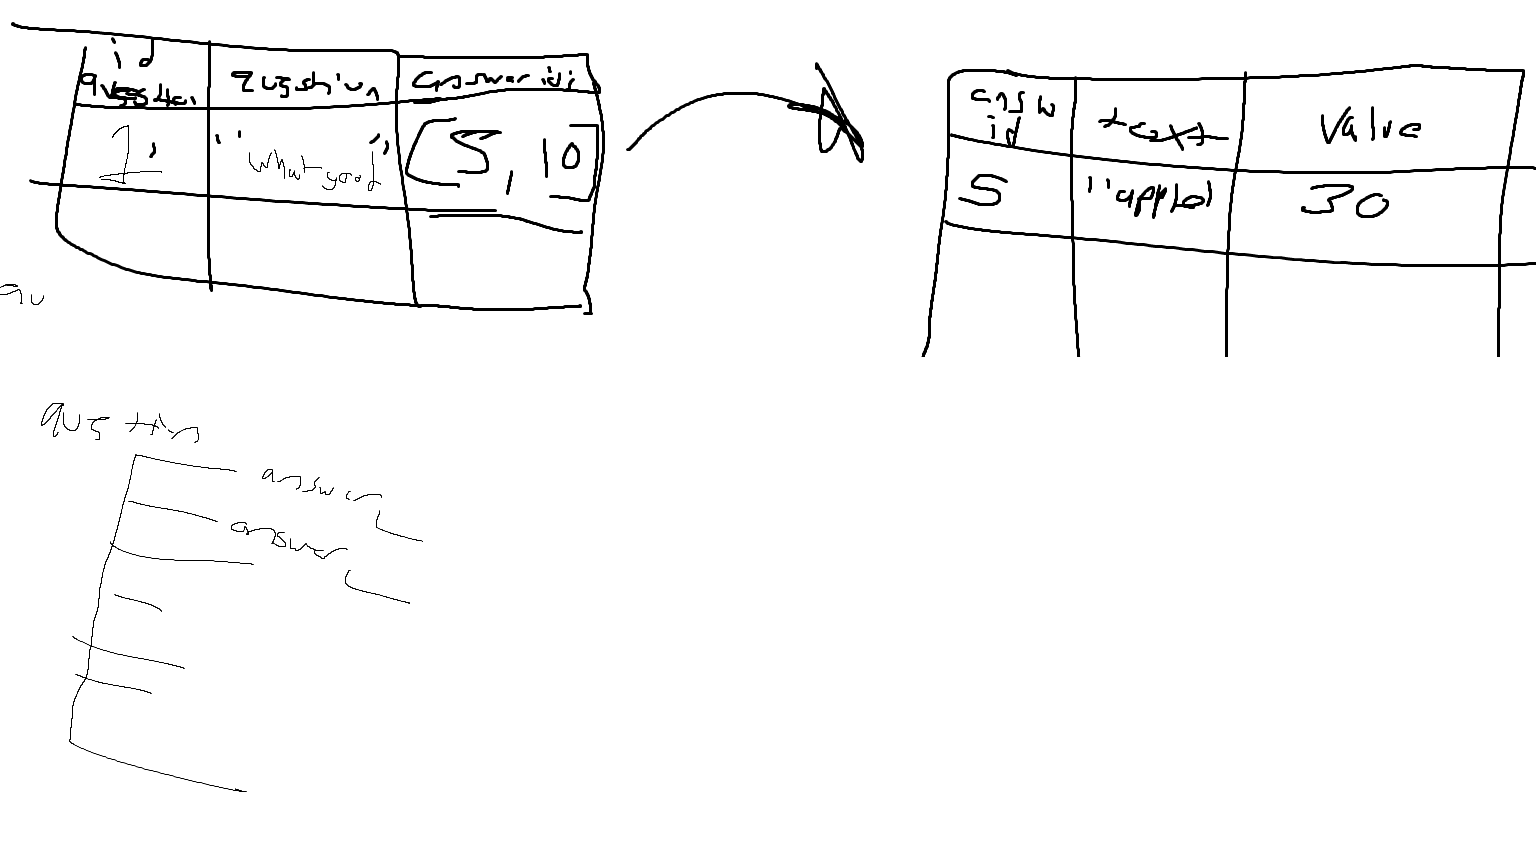 id question question answer idi
1, "what good" [5, 10]
answ id text value
5 "apple" 30
qu
question
answer
answer